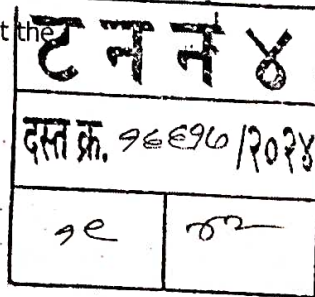 t the
ट न न ४
दस्त क्र. १६६१७/२०२४
१९